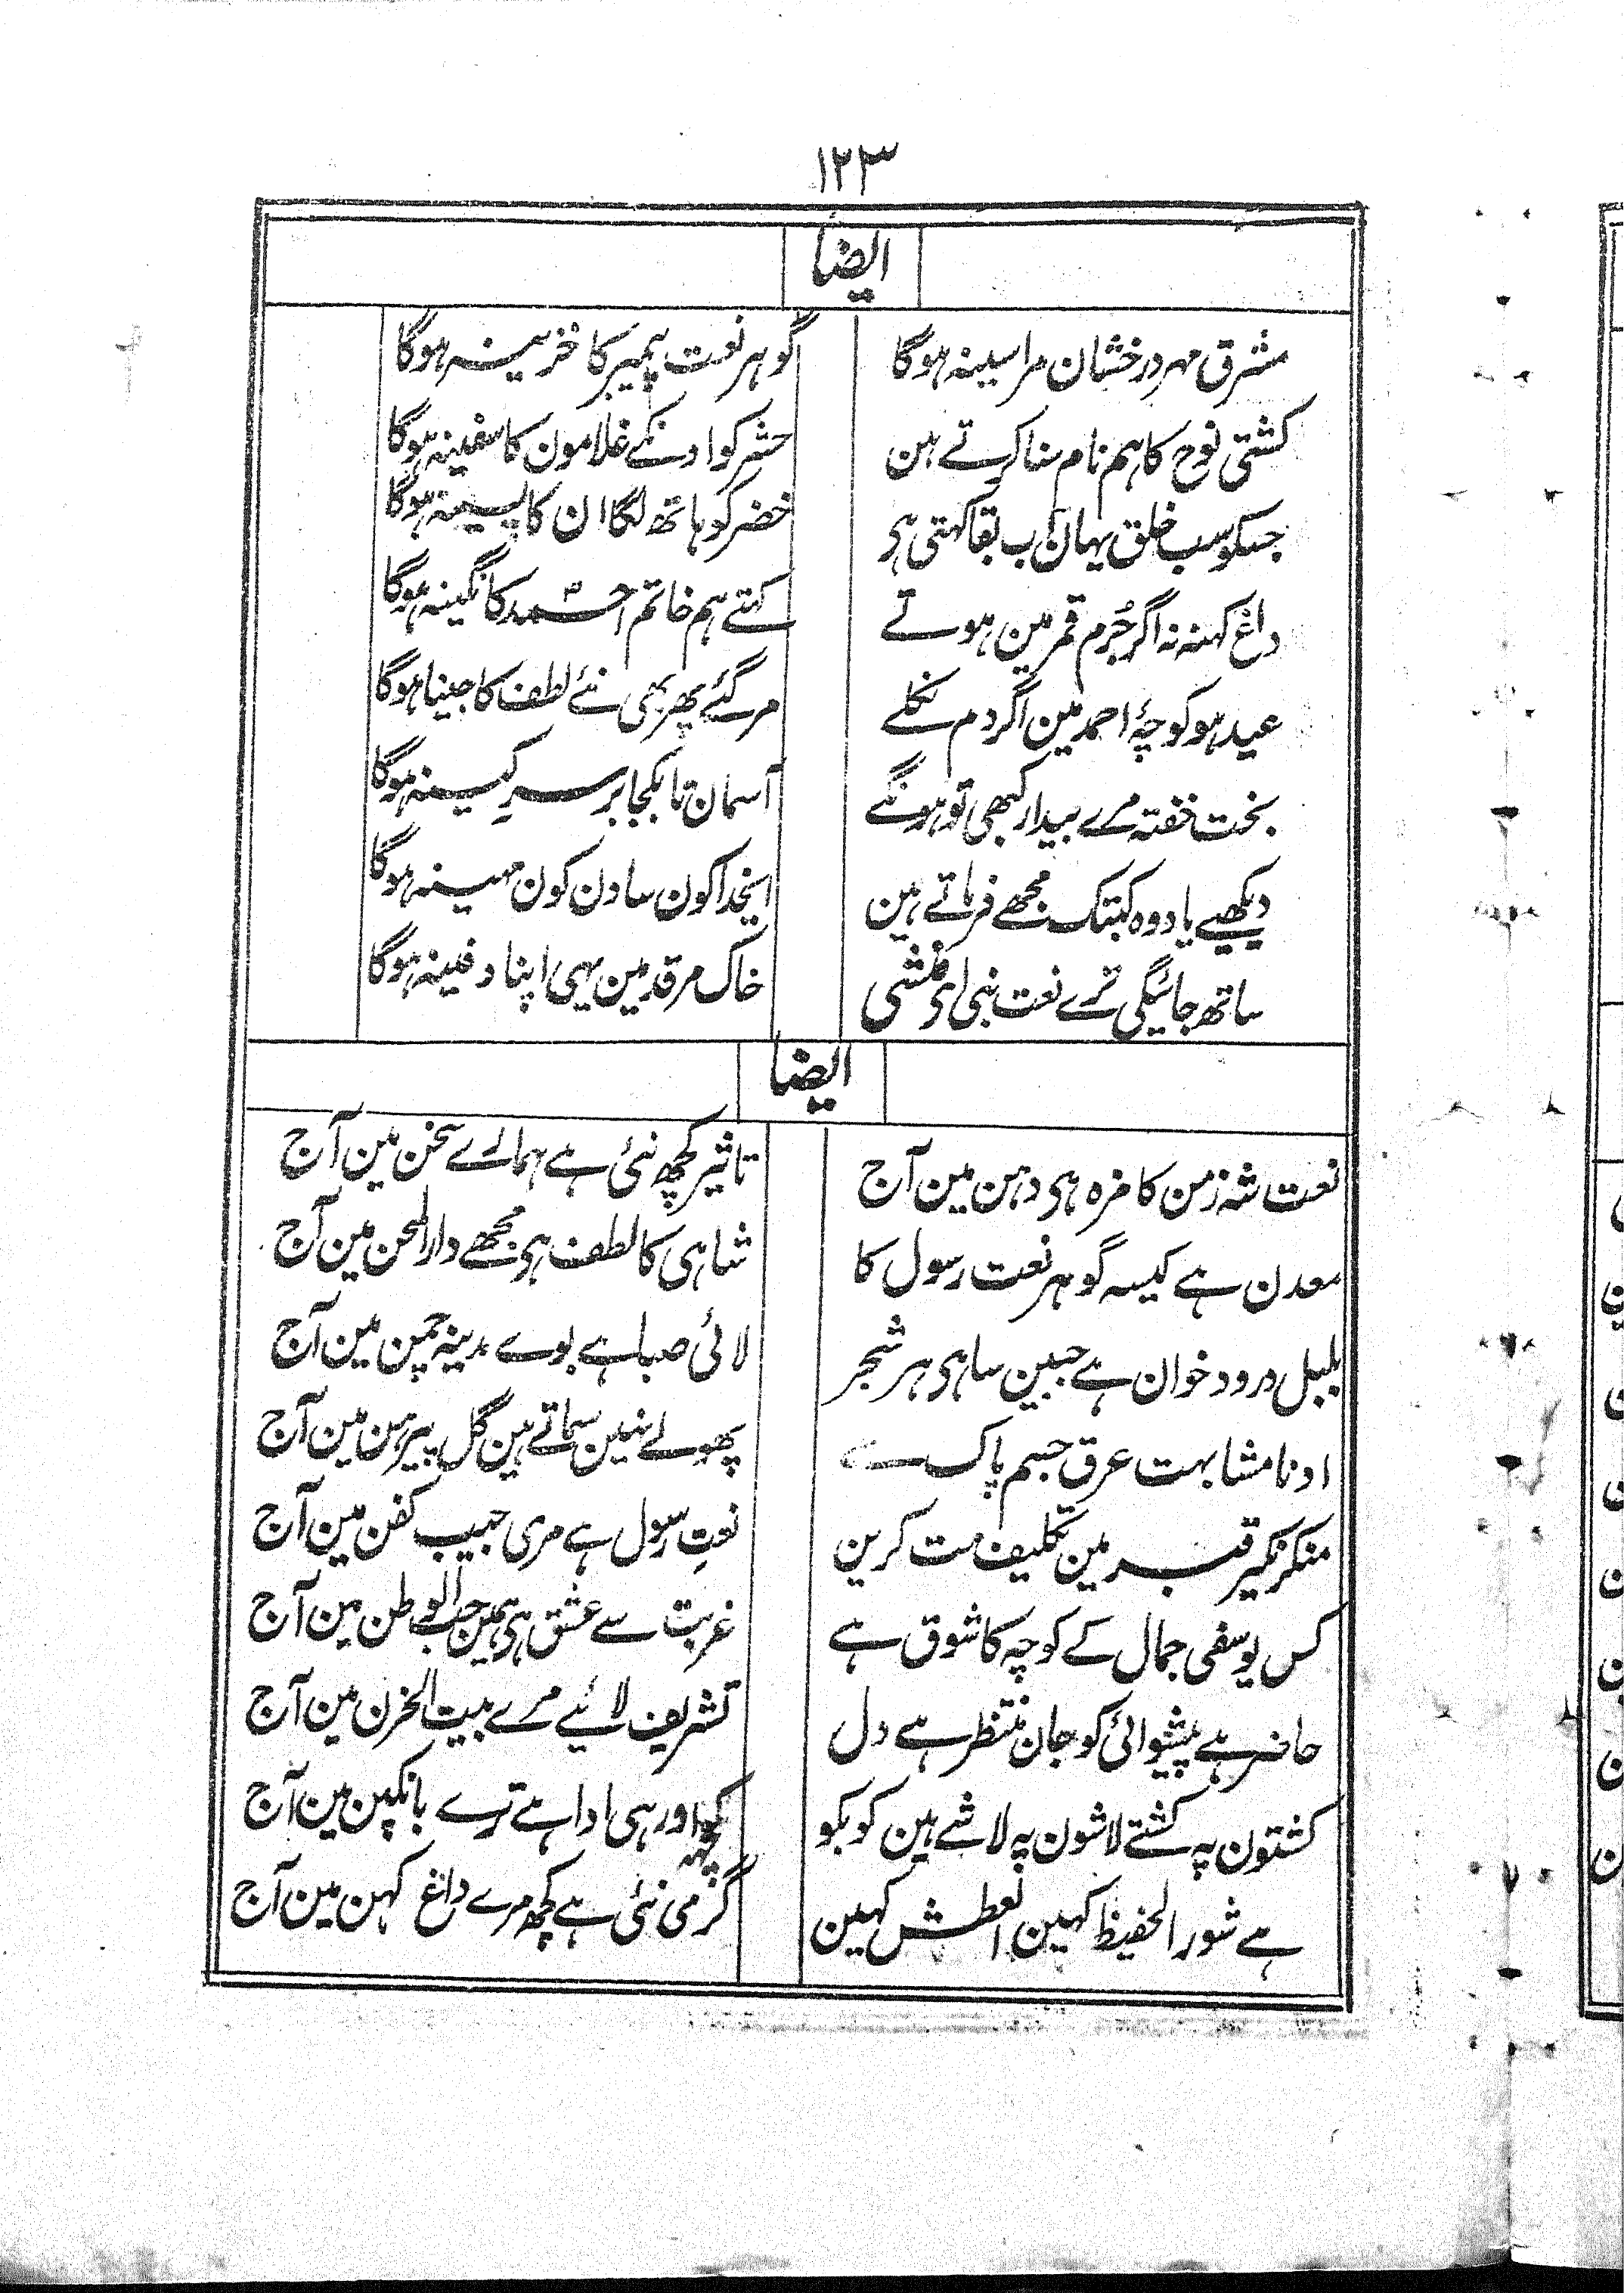 ۱۲۳
ایضا
مشرق مہر درخشان مرا سینہ ہوگا
گوہر نعت پیمبر کا خزینہ ہوگا
کشتی نوح کا ہم نام سنا کرتے ہین
حشر کو اونکے غلامون کا سفینہ ہوگا
جسکو سب خلق یہان آب بقا کہتی ہی
خضر کو ہاتھ لگا ان کا پسینہ ہوگا
داغ کہنہ نہ اگر جُرم قمر مین ہوتے
کہتے ہم خاتم احمد کا نگینہ ہوگا
عید ہو کوچۂ احمد مین اگر دم نکلے
مر گئے پھر بھی نئے لطف کا جینا ہوگا
بخت خفتہ مرے بیدار کبھی تو ہونگے
آسمان تا بکجا بر سرِ کینہ ہوگا
دیکھیے یاد وہ کبتک مجھے فرماتے ہین
ایخدا کون سا دن کون مہینہ ہوگا
ساتھ جائیگی ترے نعت نبی ای منشی
خاک مرقد مین یہی اپنا دفینہ ہوگا
ایضا
نعت شہ زمن کا مزہ ہی دہن مین آج
تاثیر کچھ نئی ہے ہمارے سخن مین آج
معدن ہے کیسہ گوہر نعت رسول کا
شاہی کا لطف ہو مجھے دارالمحن مین آج
بلبل درود خوان ہے جبین سا ہی ہر شجر
لائی صبا ہے بوے مدینہ چمن مین آج
ادنا مشابہت عرق جسم پاک سے
پھولے نہین سماتے ہین گل پیرہن مین آج
منکر نکیر قبر مین تکلیف مت کرین
نعتِ رسول ہے مری جیب کفن مین آج
کس یوسفی جمال کے کوچہ کا شوق ہے
غربت سے عشق ہی ہمین حب الوطن مین آج
حاضر ہے پیشوائی کو جان منتظر ہے دل
تشریف لائیے مرے بیت الحزن مین آج
کشتون پہ کشتے لاشون پہ لاشے ہین کو بکو
کچھ اور ہی ادا ہے ترے بانکپن مین آج
ہے شور الحفیظ کہین العطش کہین
گرمی نئی ہے کچھ مرے داغ کہن مین آج